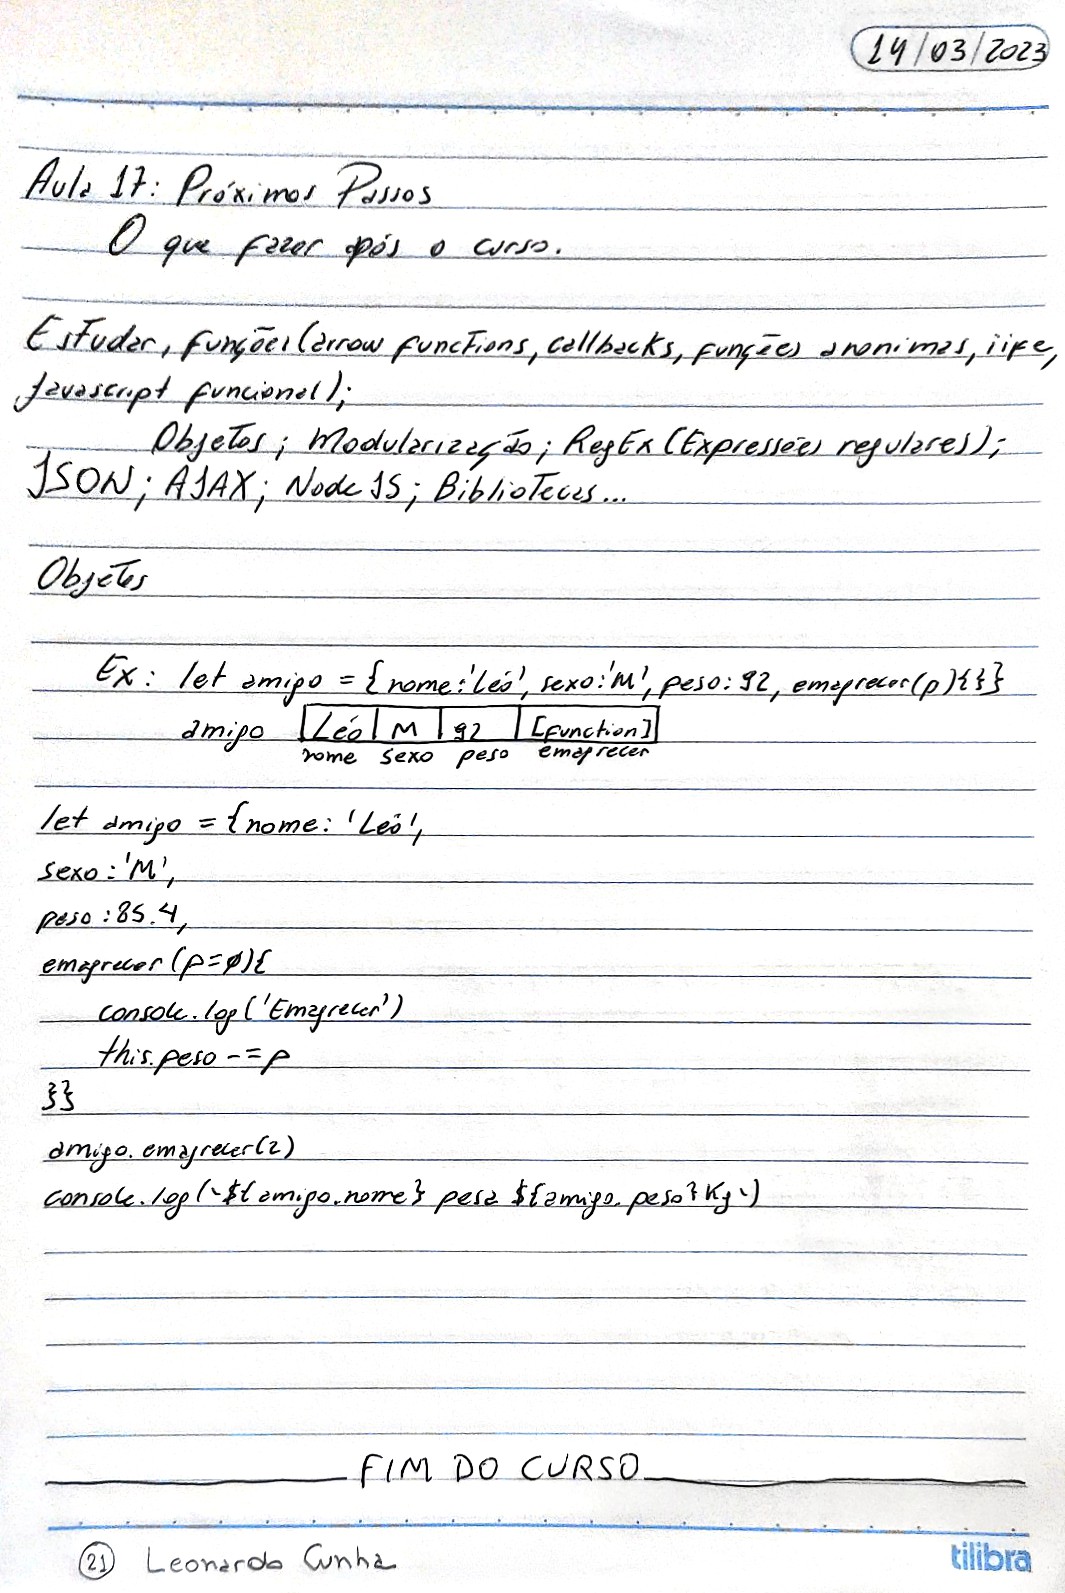 14/03/2023
Aula 17: Próximos Passos
O que fazer após o curso.
Estudar, funções (arrow functions, callbacks, funções anonimas, iife,
Javascript funcional);
Objetos; Modularização; RegEx (Expressões regulares);
JSON; AJAX; Node JS; Bibliotecas...
Objetos
Ex: let amigo = {nome:'Léo', sexo:'M', peso: 92, emagrecer(p){}}
amigo Léo M 92 [function]
nome sexo peso emagrecer
let amigo = {nome: 'Léo',
sexo:'M',
peso:85.4,
emagrecer(p=0){
console.log('Emagrecer')
this.peso -= p
}}
amigo.emagrecer(2)
console.log(`${amigo.nome} pesa ${amigo.peso}Kg`)
FIM DO CURSO
21 Leonardo Cunha
tilibra